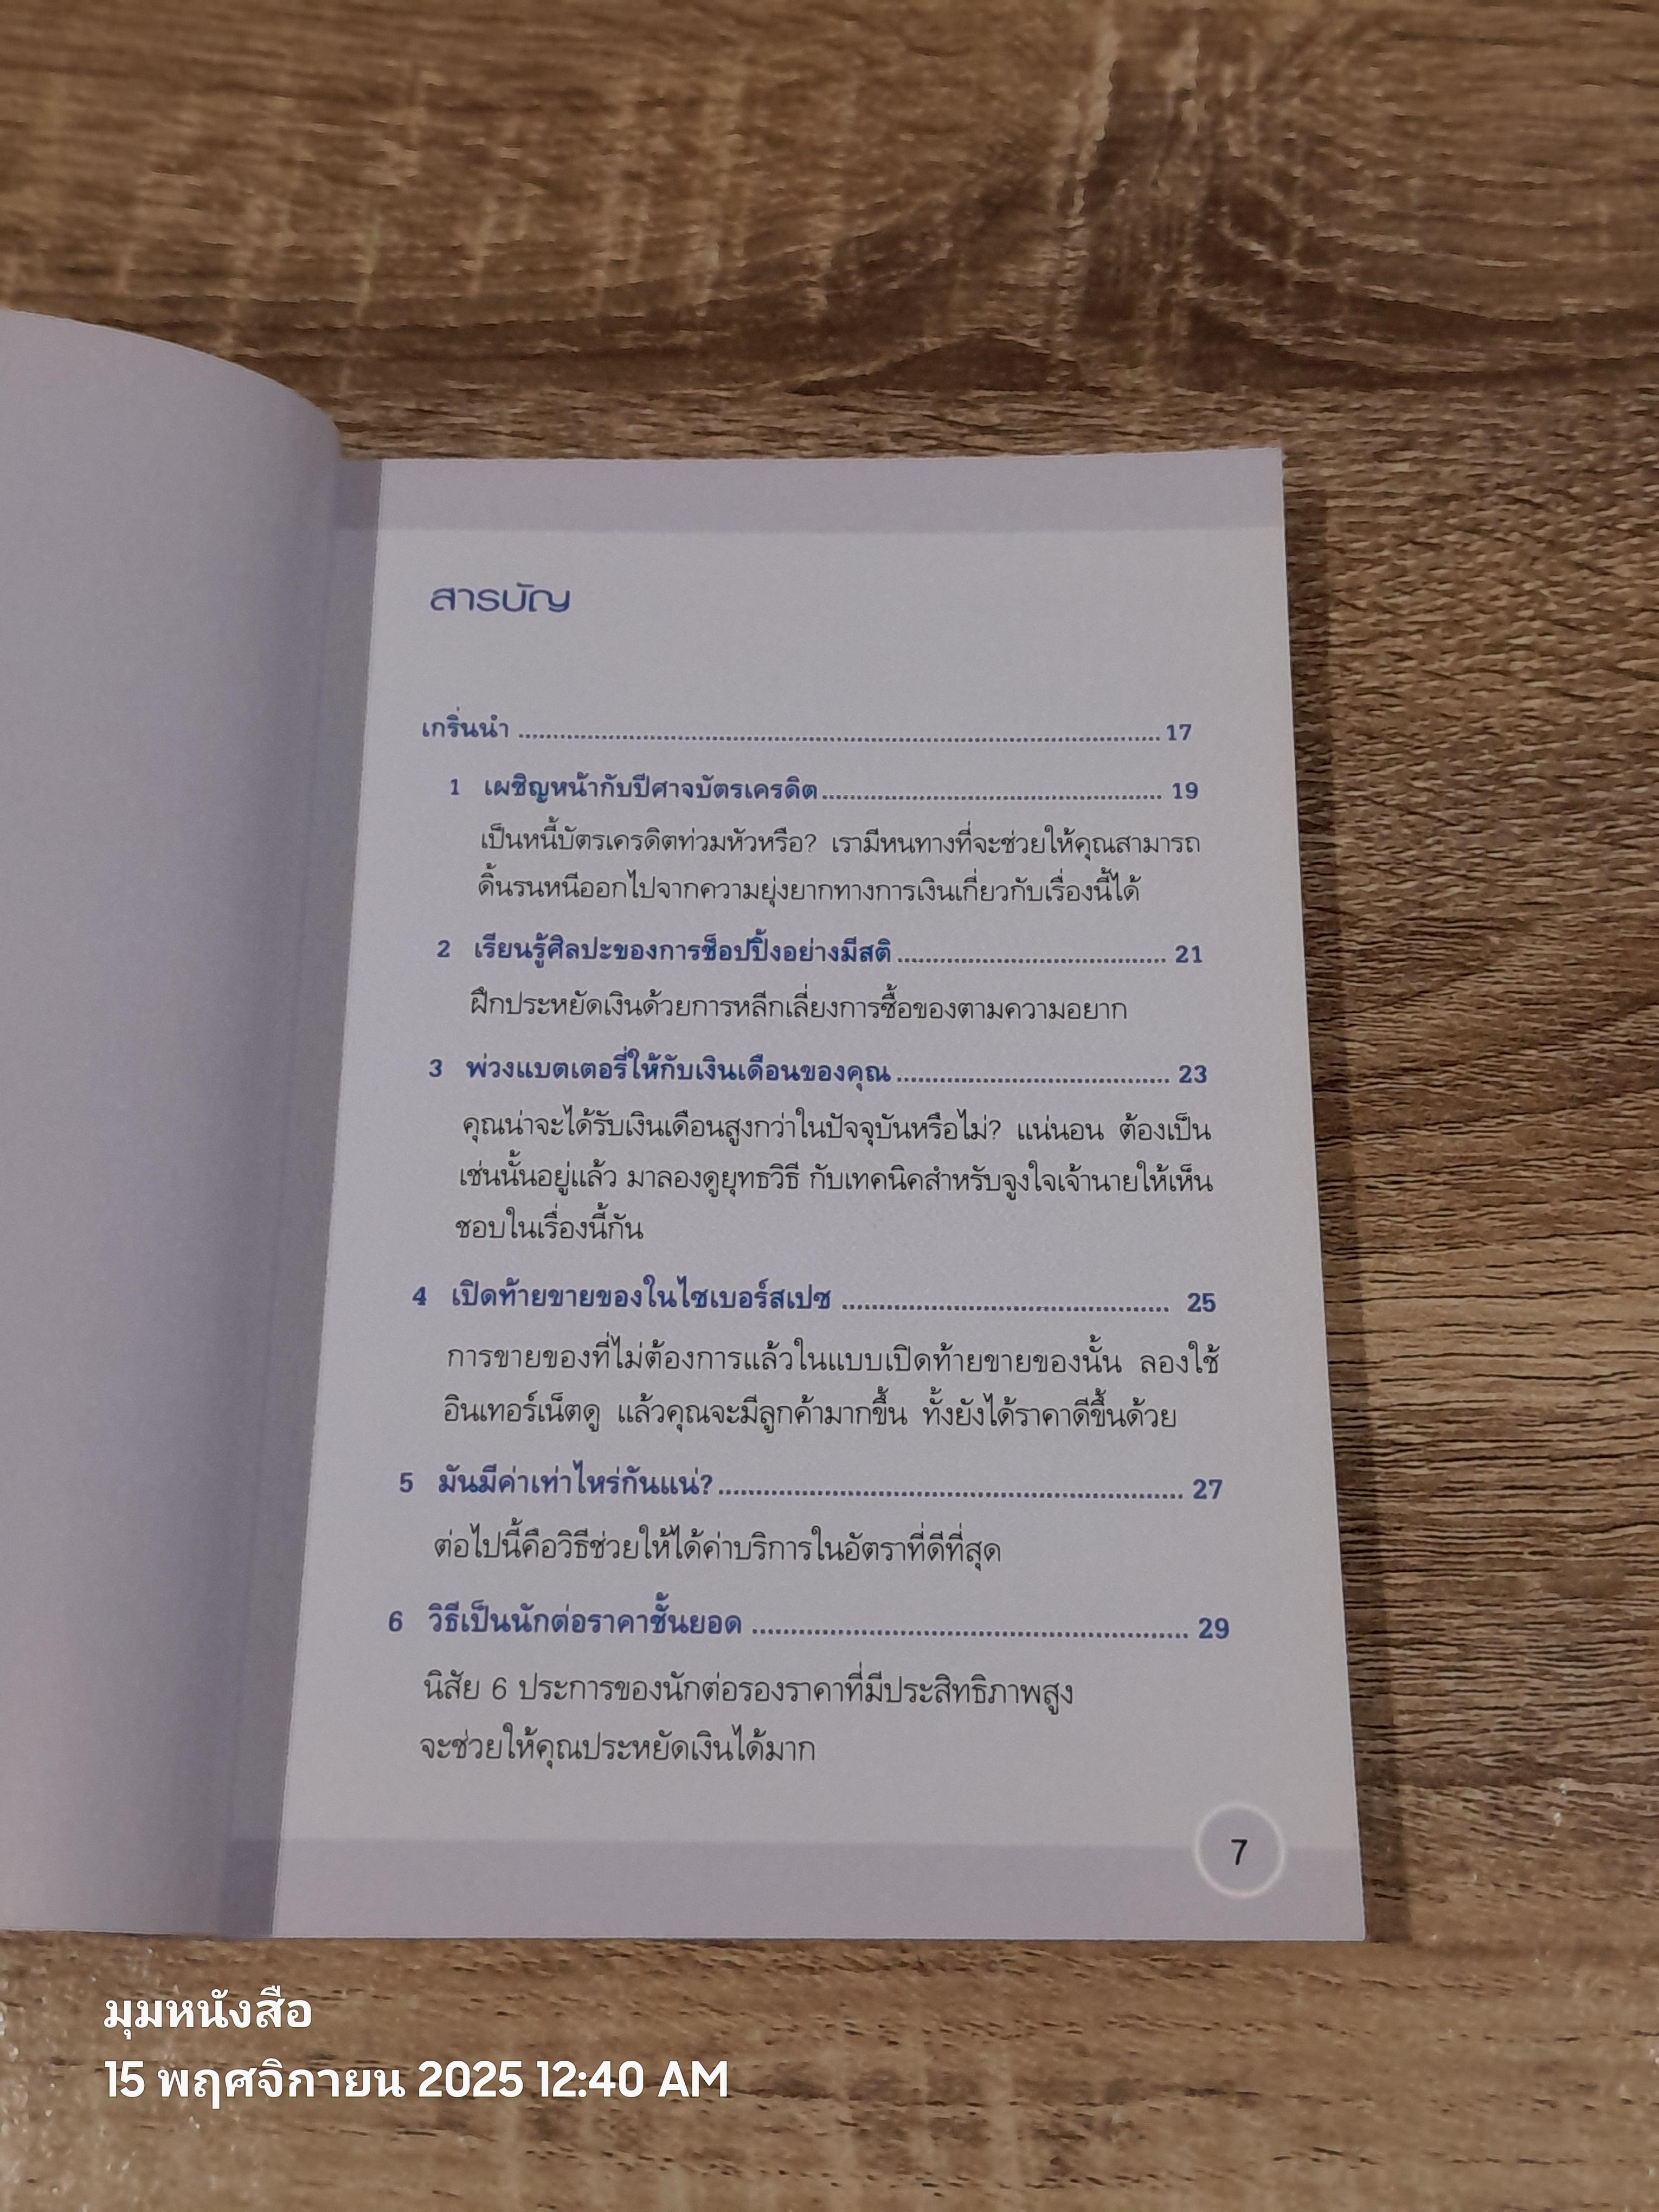 สารบัญ
เกริ่นนำ ........................................ 17
1 เผชิญหน้ากับปีศาจบัตรเครดิต ........................................ 19
เป็นหนี้บัตรเครดิตท่วมหัวหรือ? เรามีหนทางที่จะช่วยให้คุณสามารถ
ดิ้นรนหนีออกไปจากความยุ่งยากทางการเงินเกี่ยวกับเรื่องนี้ได้
2 เรียนรู้ศิลปะของการช็อปปิ้งอย่างมีสติ ........................................ 21
ฝึกประหยัดเงินด้วยการหลีกเลี่ยงการซื้อของตามความอยาก
3 พ่วงแบตเตอรี่ให้กับเงินเดือนของคุณ ........................................ 23
คุณน่าจะได้รับเงินเดือนสูงกว่าในปัจจุบันหรือไม่? แน่นอน ต้องเป็น
เช่นนั้นอยู่แล้ว มาลองดูยุทธวิธี กับเทคนิคสำหรับจูงใจเจ้านายให้เห็น
ชอบในเรื่องนี้กัน
4 เปิดท้ายขายของในไซเบอร์สเปซ ........................................ 25
การขายของที่ไม่ต้องการแล้วในแบบเปิดท้ายขายของนั้น ลองใช้
อินเทอร์เน็ตดู แล้วคุณจะมีลูกค้ามากขึ้น ทั้งยังได้ราคาดีขึ้นด้วย
5 มันมีค่าเท่าไหร่กันแน่? ........................................ 27
ต่อไปนี้คือวิธีช่วยให้ได้ค่าบริการในอัตราที่ดีที่สุด
6 วิธีเป็นนักต่อราคาชั้นยอด ........................................ 29
นิสัย 6 ประการของนักต่อรองราคาที่มีประสิทธิภาพสูง
จะช่วยให้คุณประหยัดเงินได้มาก
7
มุมหนังสือ
15 พฤศจิกายน 2025 12:40 AM